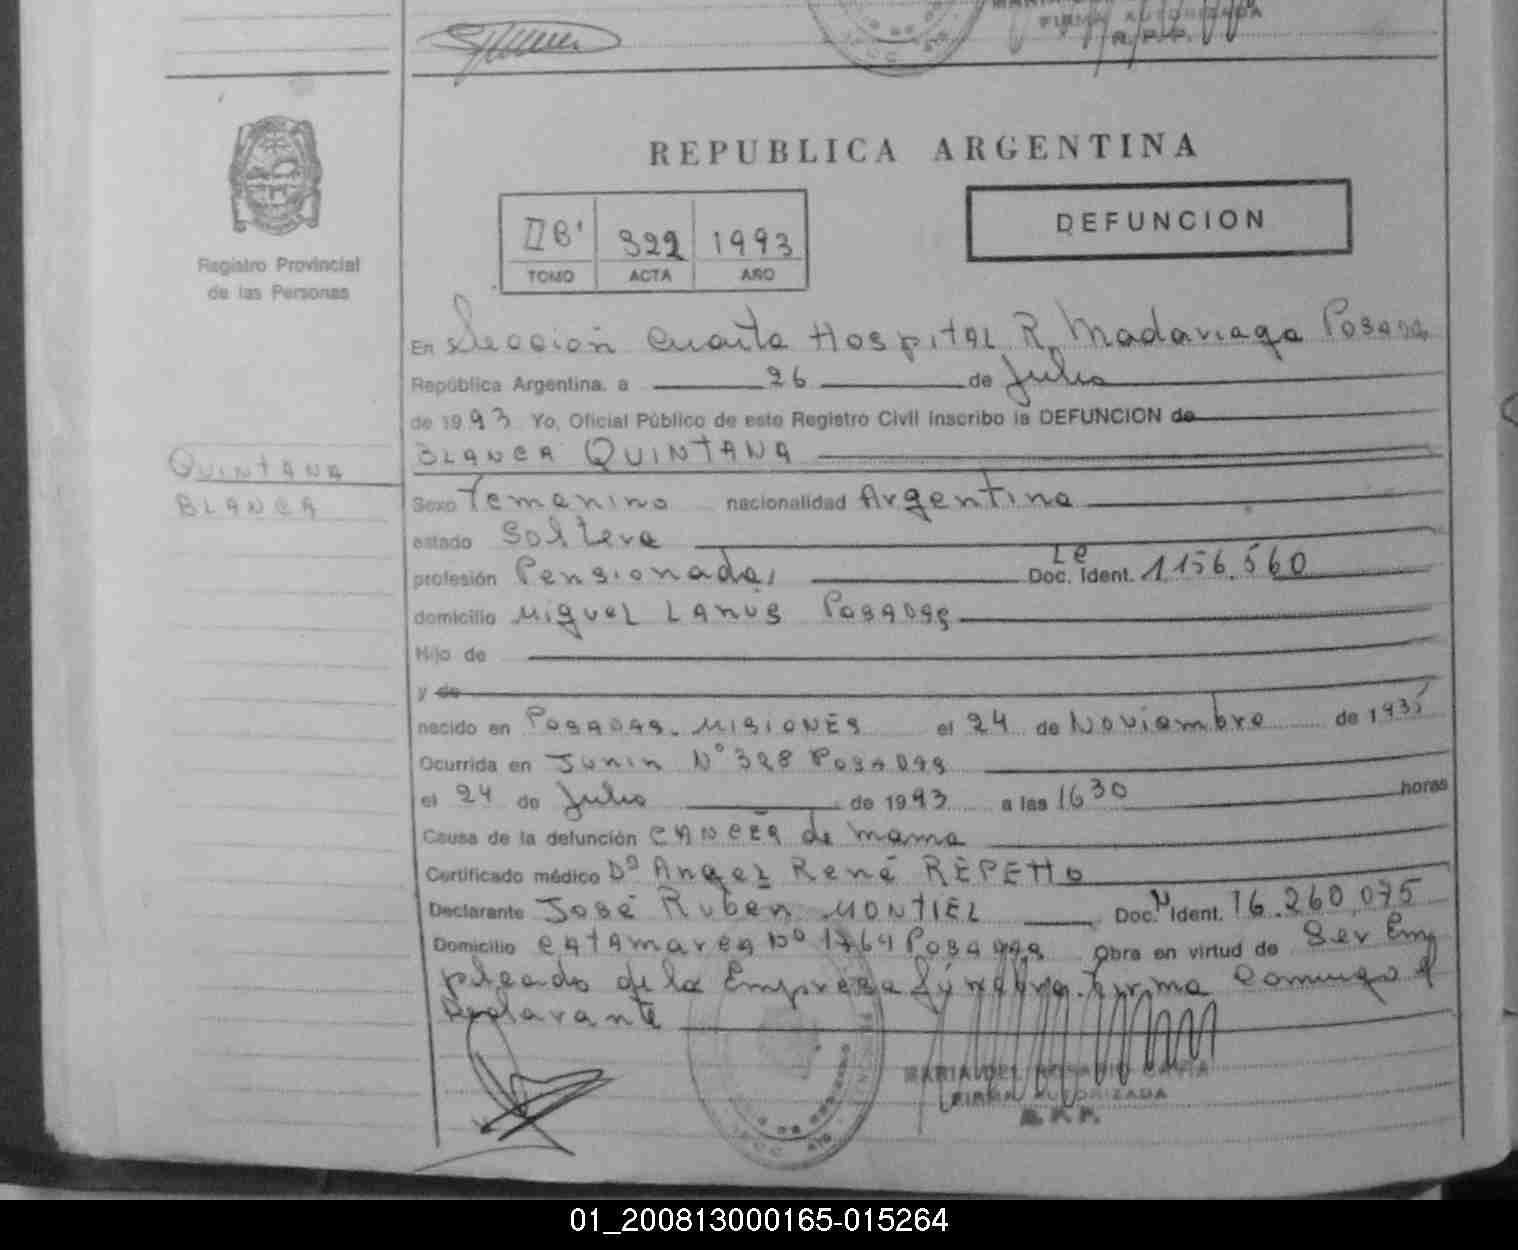 FIRMA AUTORIZADA
R. P. P.
REPUBLICA ARGENTINA
Registro Provincial
de las Personas
IIB' 322 1993
TOMO ACTA AÑO
DEFUNCION
En Sección Cuarta Hospital R. Madariaga Posadas
República Argentina. a 26 de Julio
de 1993 Yo, Oficial Público de este Registro Civil Inscribo la DEFUNCION de
BLANCA QUINTANA
QUINTANA
BLANCA
Sexo Femenino nacionalidad Argentina
estado Soltera
profesión Pensionada, Doc. Ident. Lc 1.156.560
domicilio Miguel Lanus Posadas
Hijo de
y de
nacido en Posadas. MISIONES el 24 de Noviembre de 1935
Ocurrida en Junin N° 328 Posadas
el 24 de Julio de 1993 a las 1630 horas
Causa de la defunción CANCER de mama
Certificado médico Dr Angel René REPETTO
Declarante José Ruben MONTIEL Doc. Ident. 16.260.075
Domicilio Catamarca No 1764 Posadas Obra en virtud de Ser Em
pleado de la Empresa fúnebre. Firma Conmigo el
Declarante
MARIA DEL ROSARIO
FIRMA AUTORIZADA
R. P. P.
01_200813000165-015264